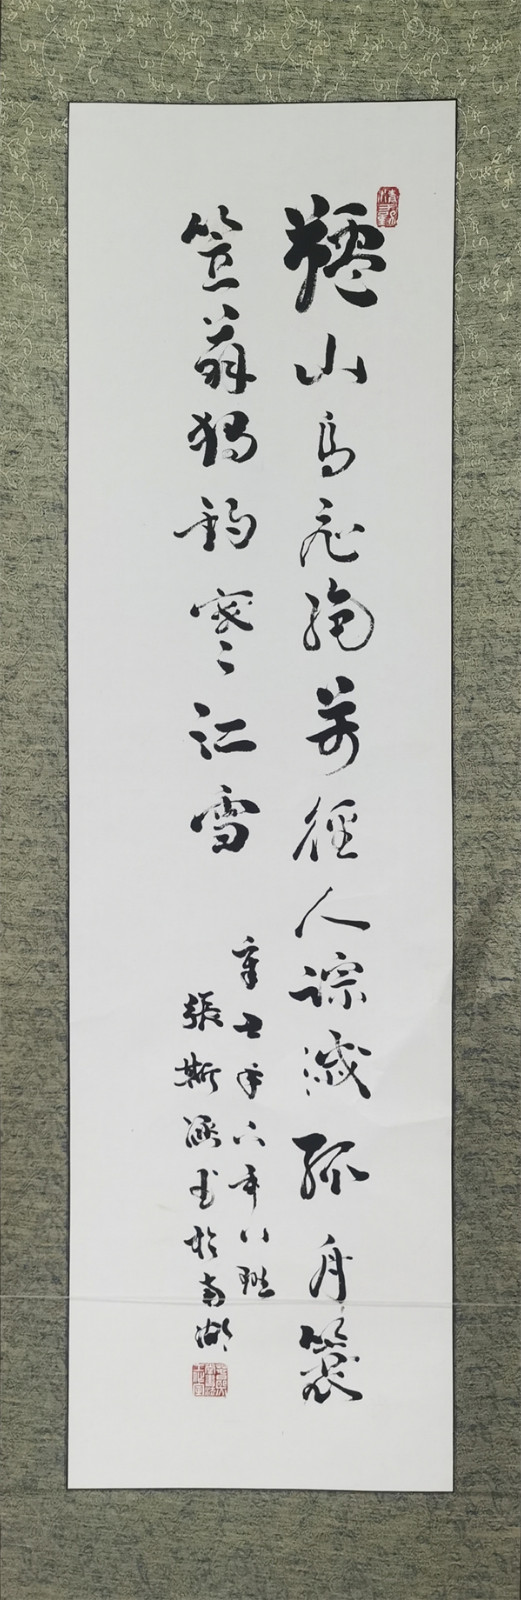 韆山鳥飛絕萬徑人踪滅孤舟簑
笠翁獨釣寒江雪
辛丑年六年八班
張斯涵書於南湖